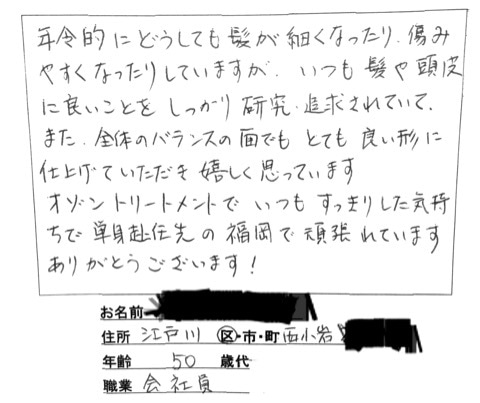 年令的にどうしても髪が細くなったり、傷み
やすくなったりしていますが、いつも髪や頭皮
に良いことをしっかり研究・追求されていて、
また、全体のバランスの面でもとても良い形に
仕上げていただき嬉しく思っています
オゾントリートメントでいつもすっきりした気持
ちで単身赴任先の福岡で頑張れています
ありがとうございます!
お名前
住所 江戸川 区・市・町 西小岩
年齢 50 歳代
職業 会社員